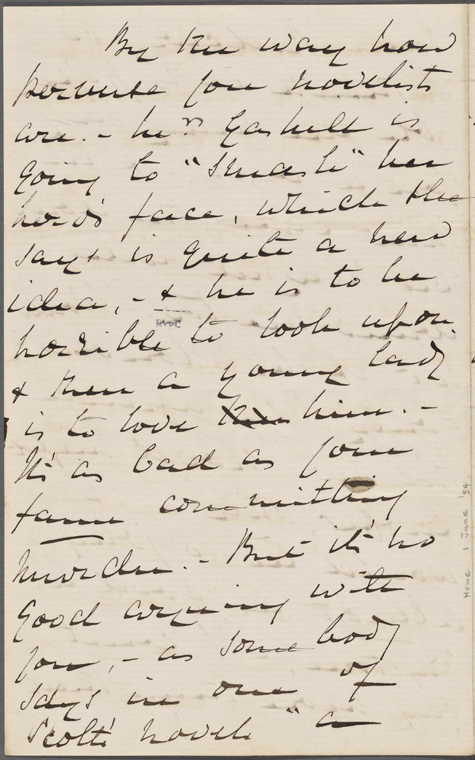 By the way how
perverse you novelists
are. - Mrs Gaskell is
going to "smash" her
hero's face, which she
says is quite a new
idea, - & he is to be
horrible to look upon.
& then a young lady
is to love him. -
It's as bad as your
faun committing
murder. - But it's no
good arguing with
you, - as some body
says in one of
Scott's novels "a